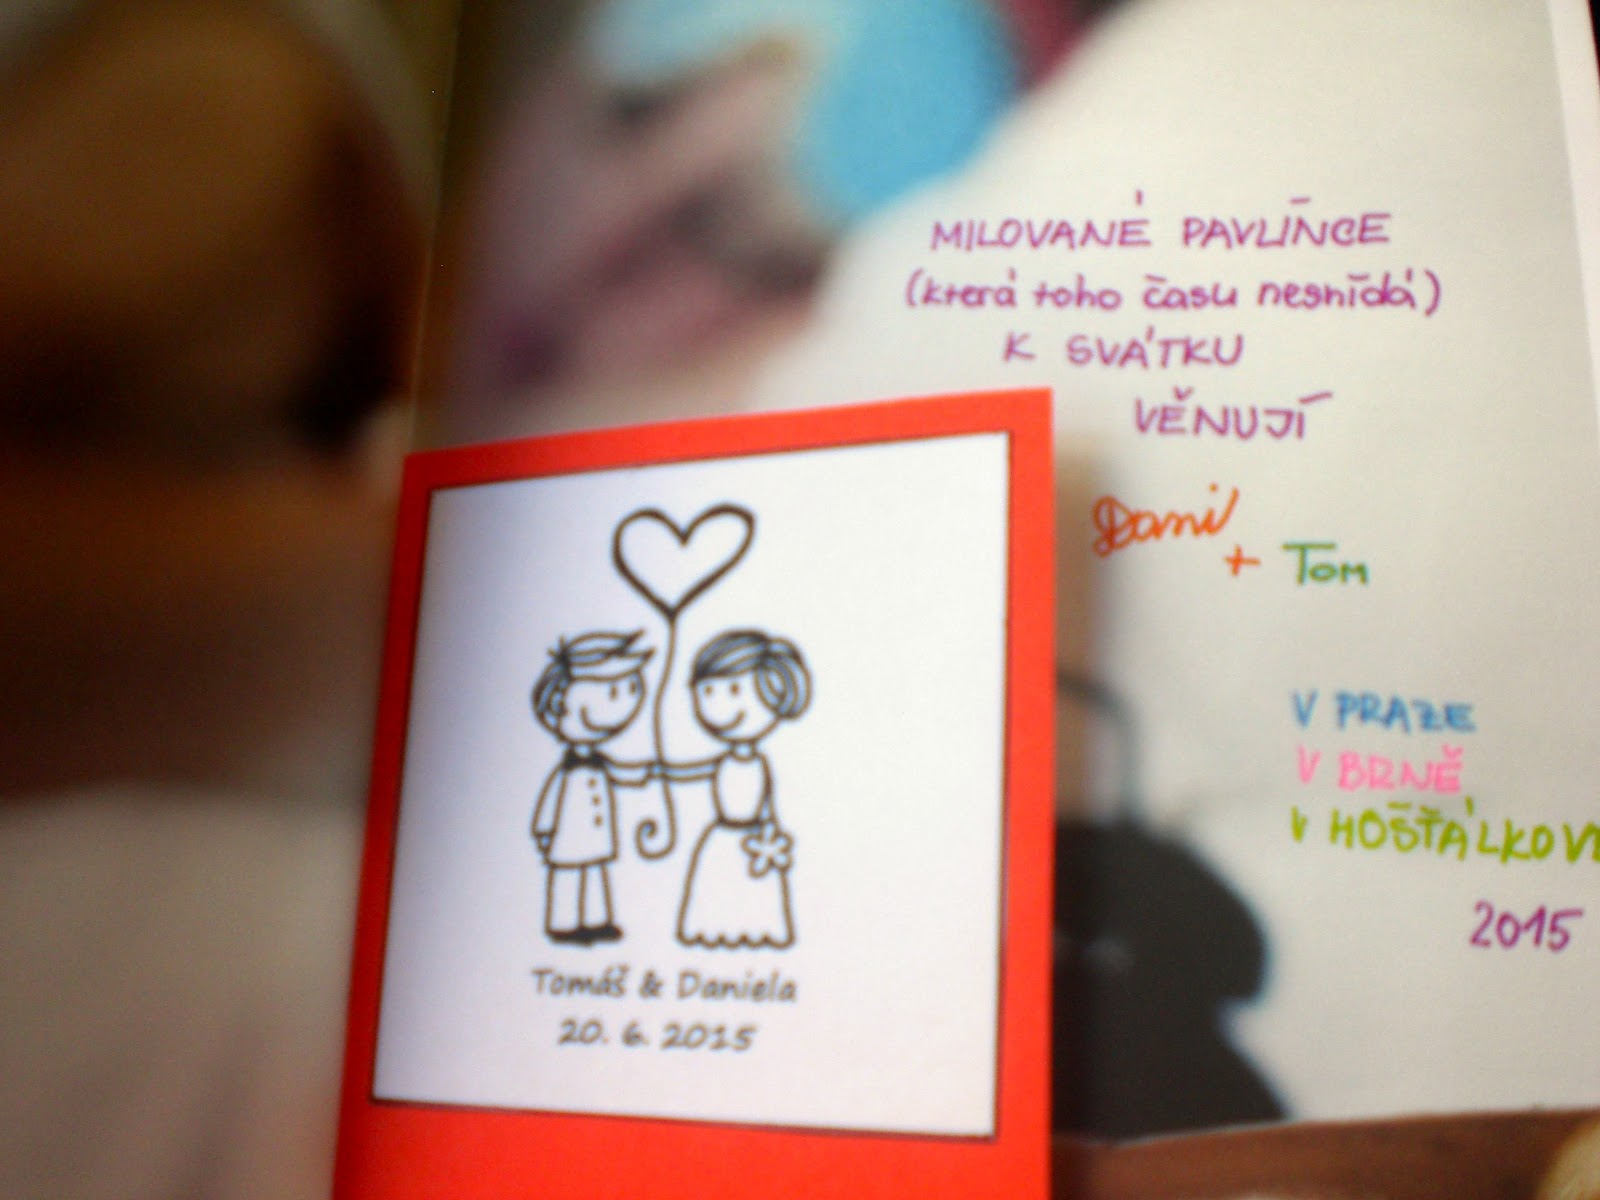 MILOVANÉ PAVLÍNCE
(která toho času nesnídá)
K SVÁTKU
VĚNUJÍ
Dani
+ Tom
V PRAZE
V BRNĚ
V HOŠŤÁLKOVÉ
2015
Tomáš & Daniela
20. 6. 2015